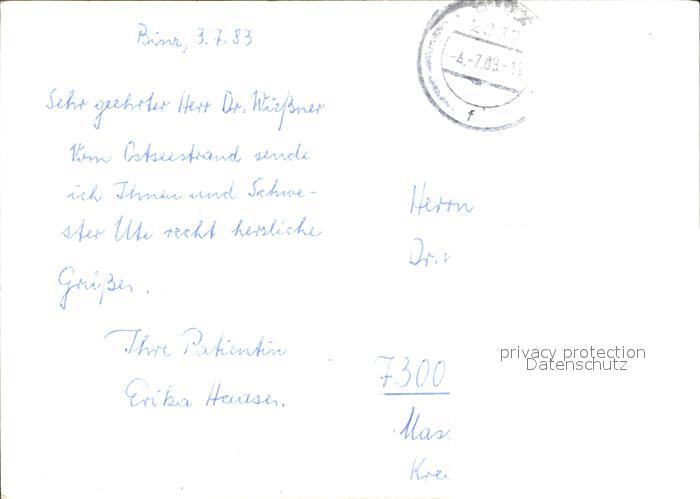 Binz, 3.7.83
Sehr geehrter Herr Dr. Wießner
Vom Ostseestrand sende
ich Ihnen und Schwe-
ster Ute recht herzliche
Grüße.
Ihre Patientin
Erika
-4.-7.83.-1
f
Herrn
Dr.
7300
privacy protection
Datenschutz